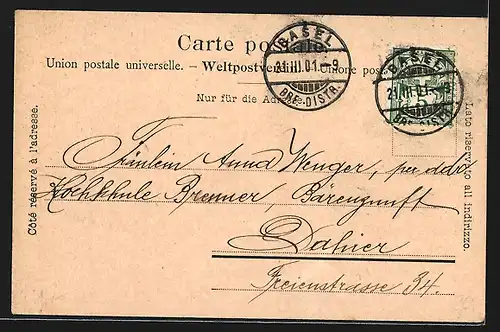 Carte postale
Union postale universelle. — Weltpostverein. — Unione postale
Nur für die Adresse.
BASEL
21.III.01.–9
BRF.DISTR.
BASEL
21.III.01.–9
BRF.DISTR.
5
Côté réservé à l'adresse.
Lato riservato all indirizzo.
Fräulein Anna Wenger, per adr.
Kochschule Brenner, Bärenzunft
Dahier
Freienstrasse 34.